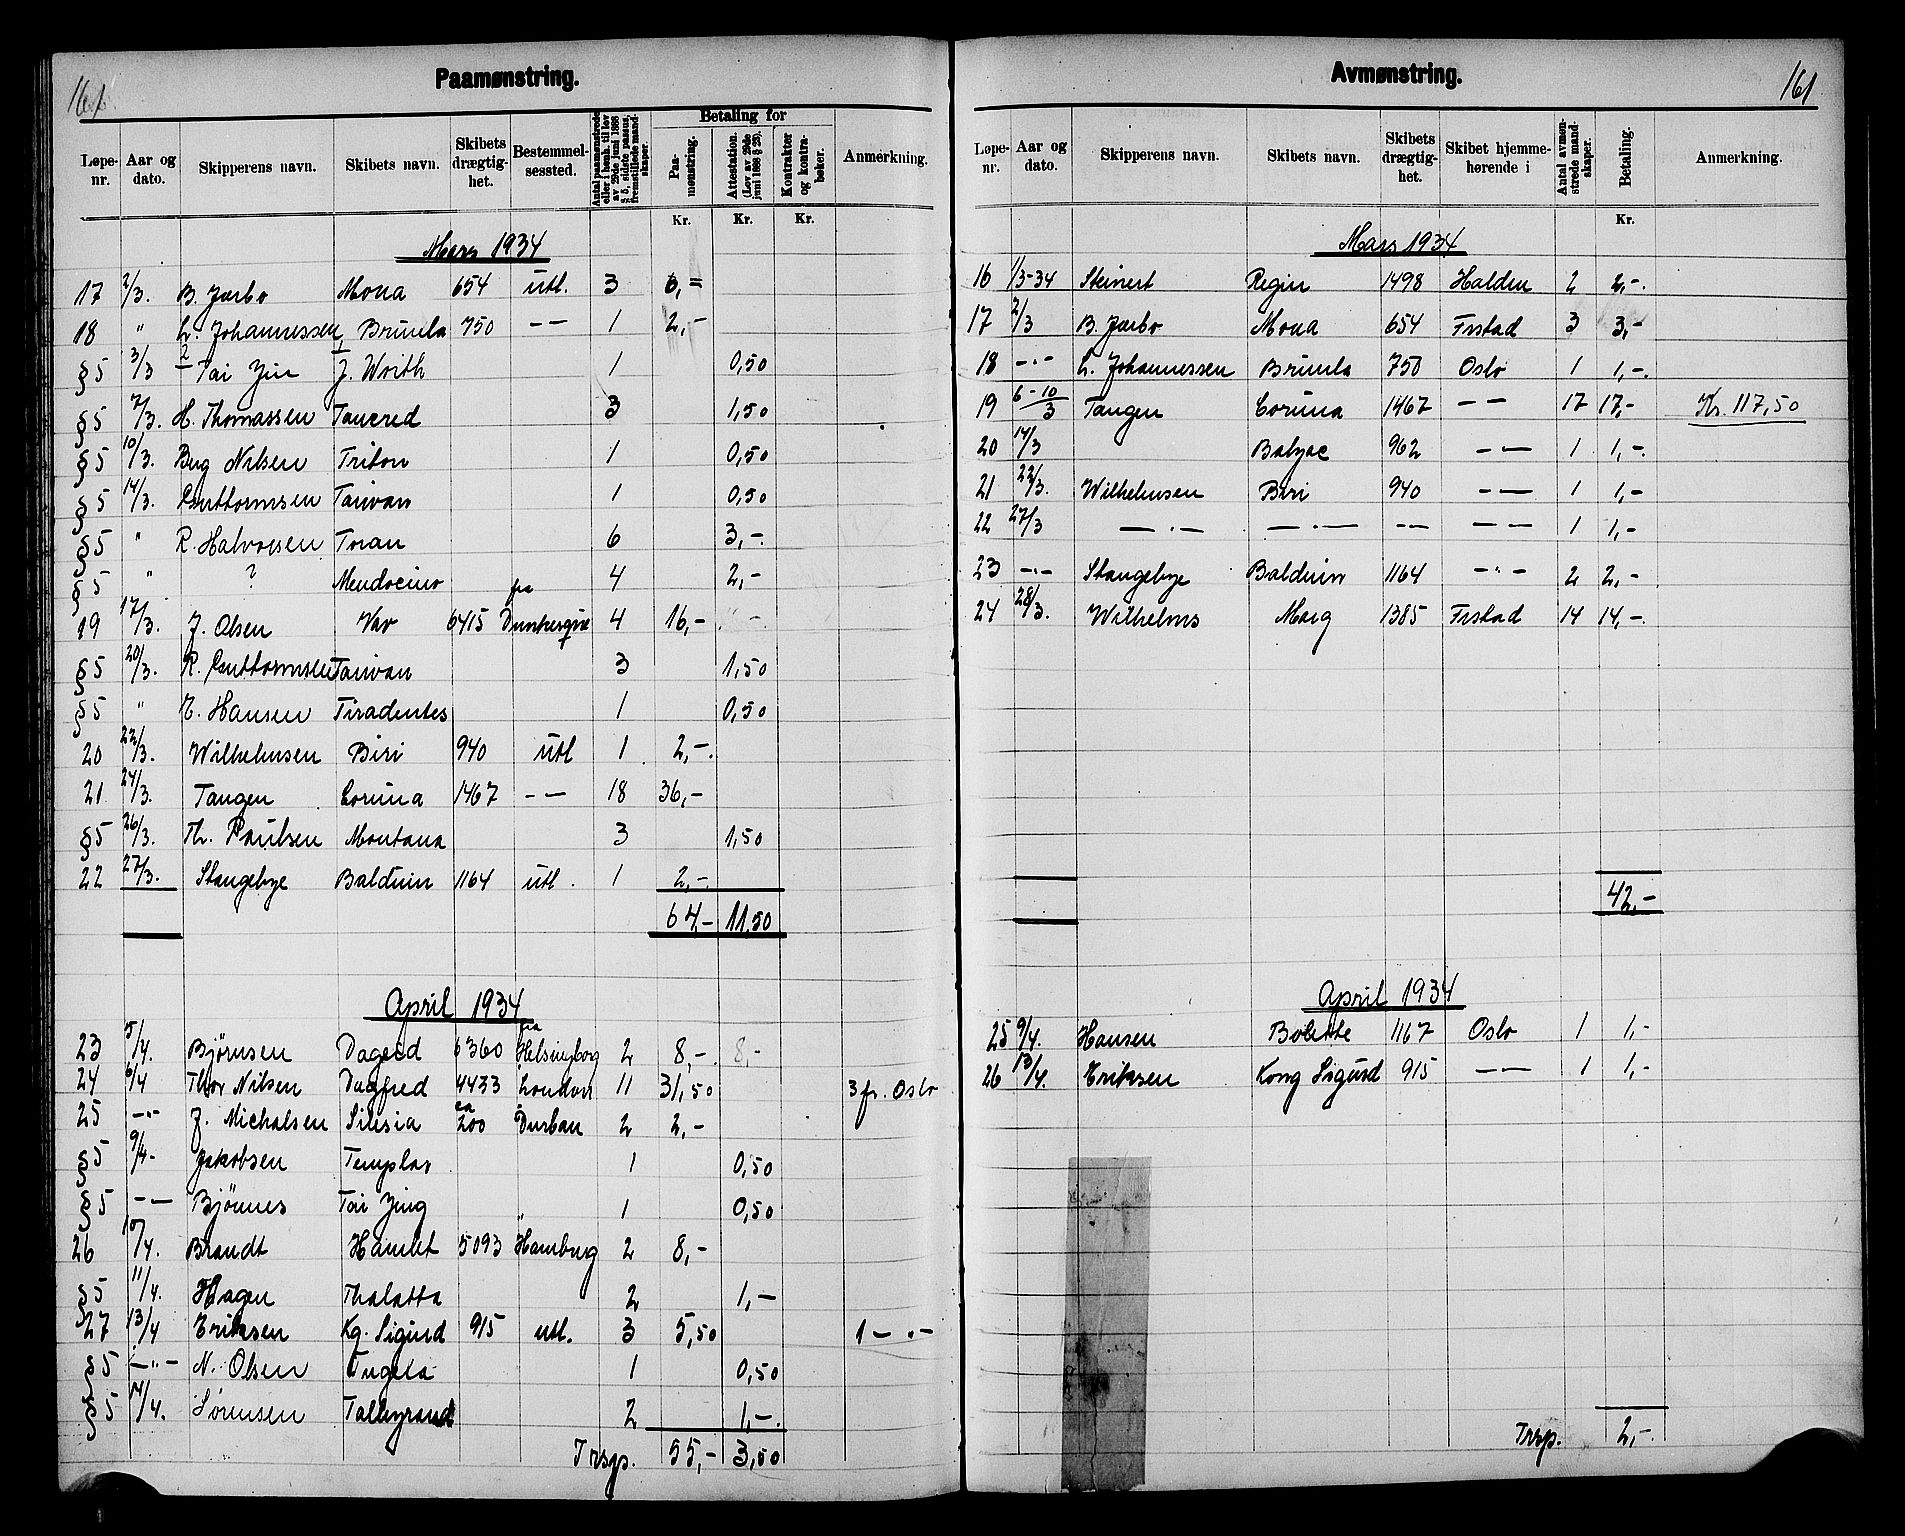 161
Paamønstring.
Løpe-nr. Aar og dato. Skipperens navn. Skibets navn. Skibets drægtig-het. Bestemmel-sessted. Antal paamønstrede eller i henh. til lov av 29de juni 1888 § 5, sidste passus, fremstillede mand-skaper. Betaling for Paa-mønstring. Attestation. (Lov av 29de juni 1888 § 25). Kontrakter og kontra-bøker. Anmerkning.
Kr. Kr. Kr.
Mars 1934
17 2/3. B. Jærbo Mona 654 utl. 3 6,=
18 " L. Johannessen Brumla 750 – — 1 2,-
§5 3/3 Tai Yin J. Writh 1 0,50
§5 7/3. H. Thomassen Tancred 3 1,50
§5 10/3. Bug Nilsen Triton 1 0,50
§5 14/3. Guttormsen Taiwan 1 0,50
§5 " R. Halvorsen Toran 6 3,-.
§5 " ? Mendocino 4 2,-
19 17/3. J. Olsen Var 6415 fra Dunkerque 4 16,-
§5 20/3. R. Guttormsen Taiwan 3 1,50
§5 " E. Hansen Tiradentes 1 0,50
20 22/3. Wilhelmsen Biri 940 utl 1 2,-.
21 24/3. Tangen Coruna 1467 - — 18 36,-
§5 26/3. Th. Paulsen Montana 3 1,50
22 27/3. Stangebye Balduin 1164 utl. 1 2,-.
64,- 11.50
April 1934
23 5/4. Bjørnsen Dageid 6360 fra Helsingborg 2 8,-. 8,-
24 6/4 Thor Nilsen Dagfred 4433 London 11 31,50 3 fr. Oslo
25 -"- J. Michalsen Silesia ca 200 Durban 2 2,-
§5 9/4- Jakobsen Templar 1 0,50
§5 - — Bjönnes Tai Ying 1 0,50
26 10/4. Brandt Hamlet 5093 " Hamburg 2 8,-
§5 11/4. Hagen Thalatta 2 1,-
27 13/4 Eriksen Kg. Sigurd 915 utl. 3 5,50 1 – "–
§5 -"- N. Olsen Tugela 1 0,50
§5 14/4. Sörensen Talleyrand 2 1,-.
Trsp. 55,- 3,50
Avmønstring.
161
Løpe-nr. Aar og dato. Skipperens navn. Skibets navn. Skibets drægtig-het. Skibet hjemme-hørende i Antal avmøn-strede mand-skaper. Betaling. Anmerkning.
Kr.
Mars 1934
16 1/3-34 Steinert Regin 1498 Halden 2 2,-.
17 2/3 B. Jærbo Mona 654 Frstad 3 3,-
18 -"- L. Johannessen Brumla 750 Oslo 1 1,-.
19 6-10/3 Tangen Coruna 1467 – — 17 17,- Kr. 117,50
20 14/3 Balzac 962 – — 1 1,-.
21 22/3. Wilhelmsen Biri 940 – — 1 1,-
22 27/3 — . — — . — – — – — 1 1,-
23 -"- Stangebye Balduin 1164 -"- 2 2,-
24 28/3. Wilhelms Marg 1385 Frstad 14 14,-.
42,-
April 1934
25 9/4. Hansen Bolette 1167 Oslo 1 1,-
26 13/4. Eriksen Kong Sigurd 915 – — 1 1,-
Trsp. 2,-.